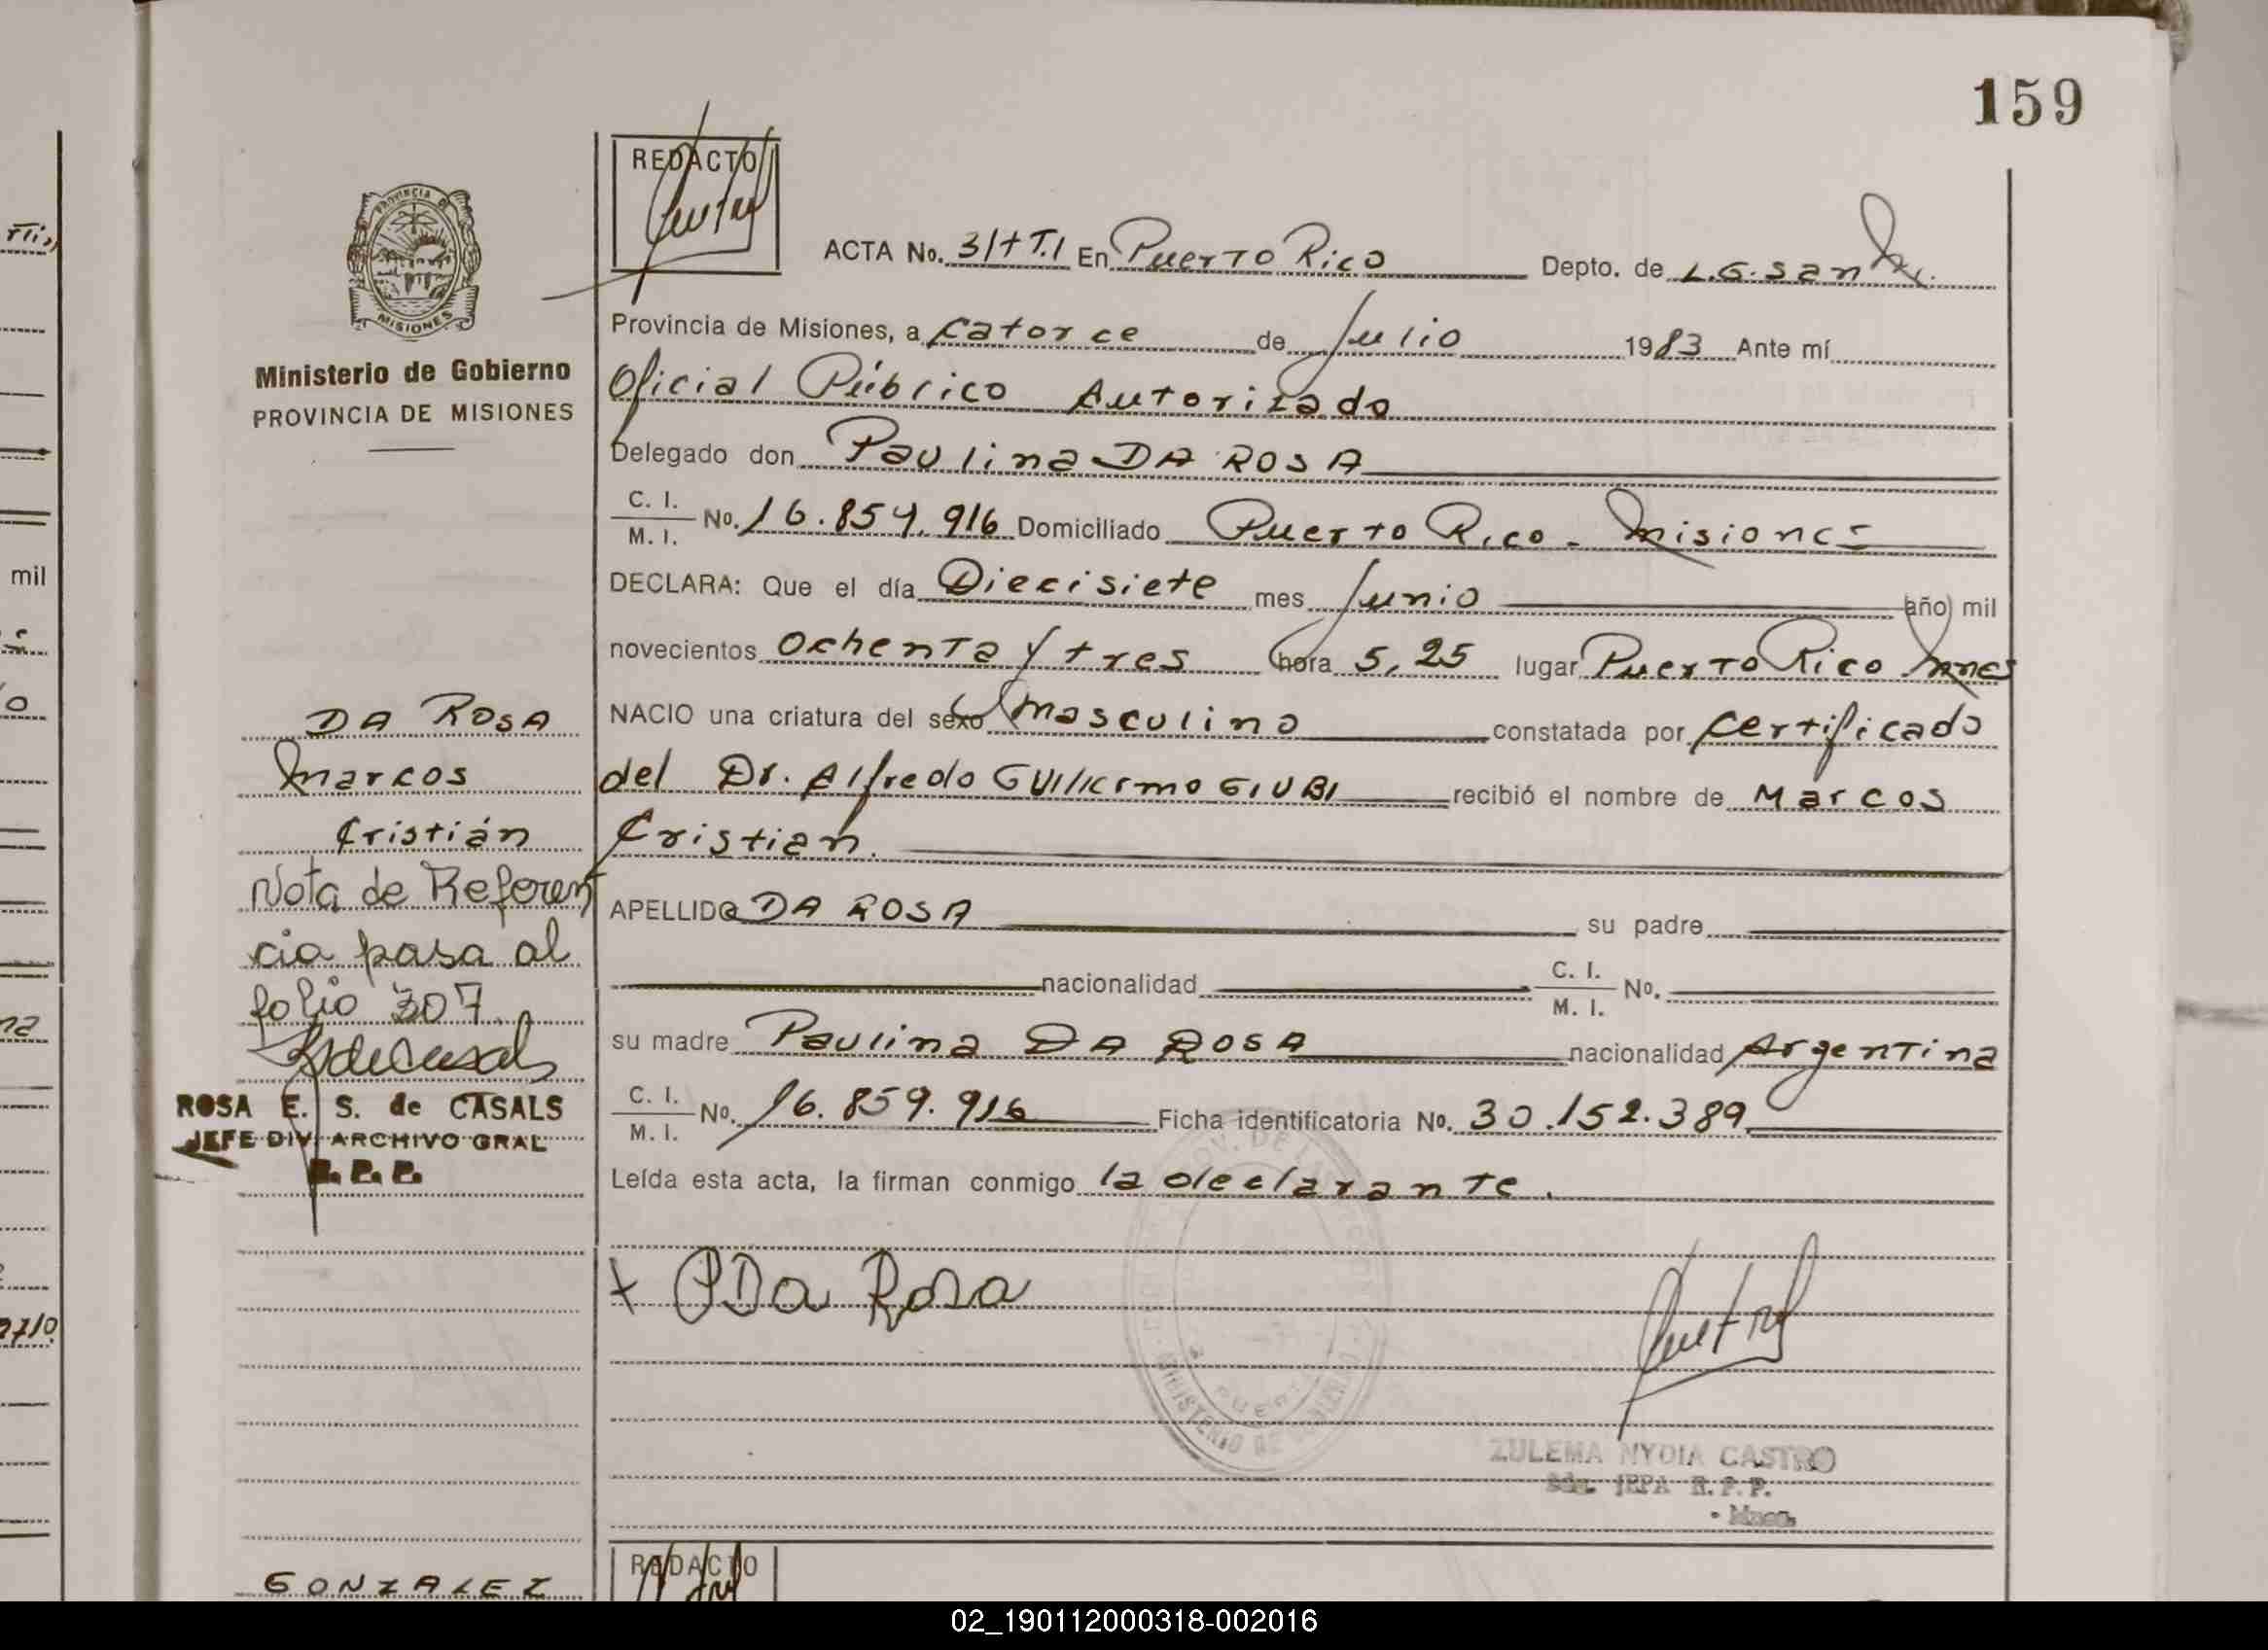 159
REDACTO
ACTA No. 317 T.I En Puerto Rico Depto. de L.G. San M.
PROVINCIA DE
MISIONES
Provincia de Misiones, a catorce de Julio 1983 Ante mí
Ministerio de Gobierno
PROVINCIA DE MISIONES
Oficial Público Autorizado
Delegado don Paulina DA ROSA
C. I.
M. I. No. 16.859.916 Domiciliado Puerto Rico - Misiones
DECLARA: Que el día Diecisiete mes Junio año mil
novecientos Ochenta y tres hora 5,25 lugar Puerto Rico Mnes
NACIO una criatura del sexo masculino constatada por certificado
del Dr. Alfredo GUILLERMO GIUBI recibió el nombre de Marcos
Cristián.
APELLIDO DA ROSA su padre
nacionalidad C. I.
M. I. No.
su madre Paulina DA ROSA nacionalidad Argentina
C. I.
M. I. No. 16.859.916 Ficha identificatoria No. 30.152.389
Leída esta acta, la firman conmigo la declarante.
+ PDa Rosa
ZULEMA NYDIA CASTRO
R. P. P.
DA ROSA
Marcos
Cristián
Nota de Referen
cia pasa al
folio 307.
ROSA E. S. de CASALS
JEFE DIV. ARCHIVO GRAL
R. P. P.
GONZALEZ
REDACTO
mil
02_190112000318-002016